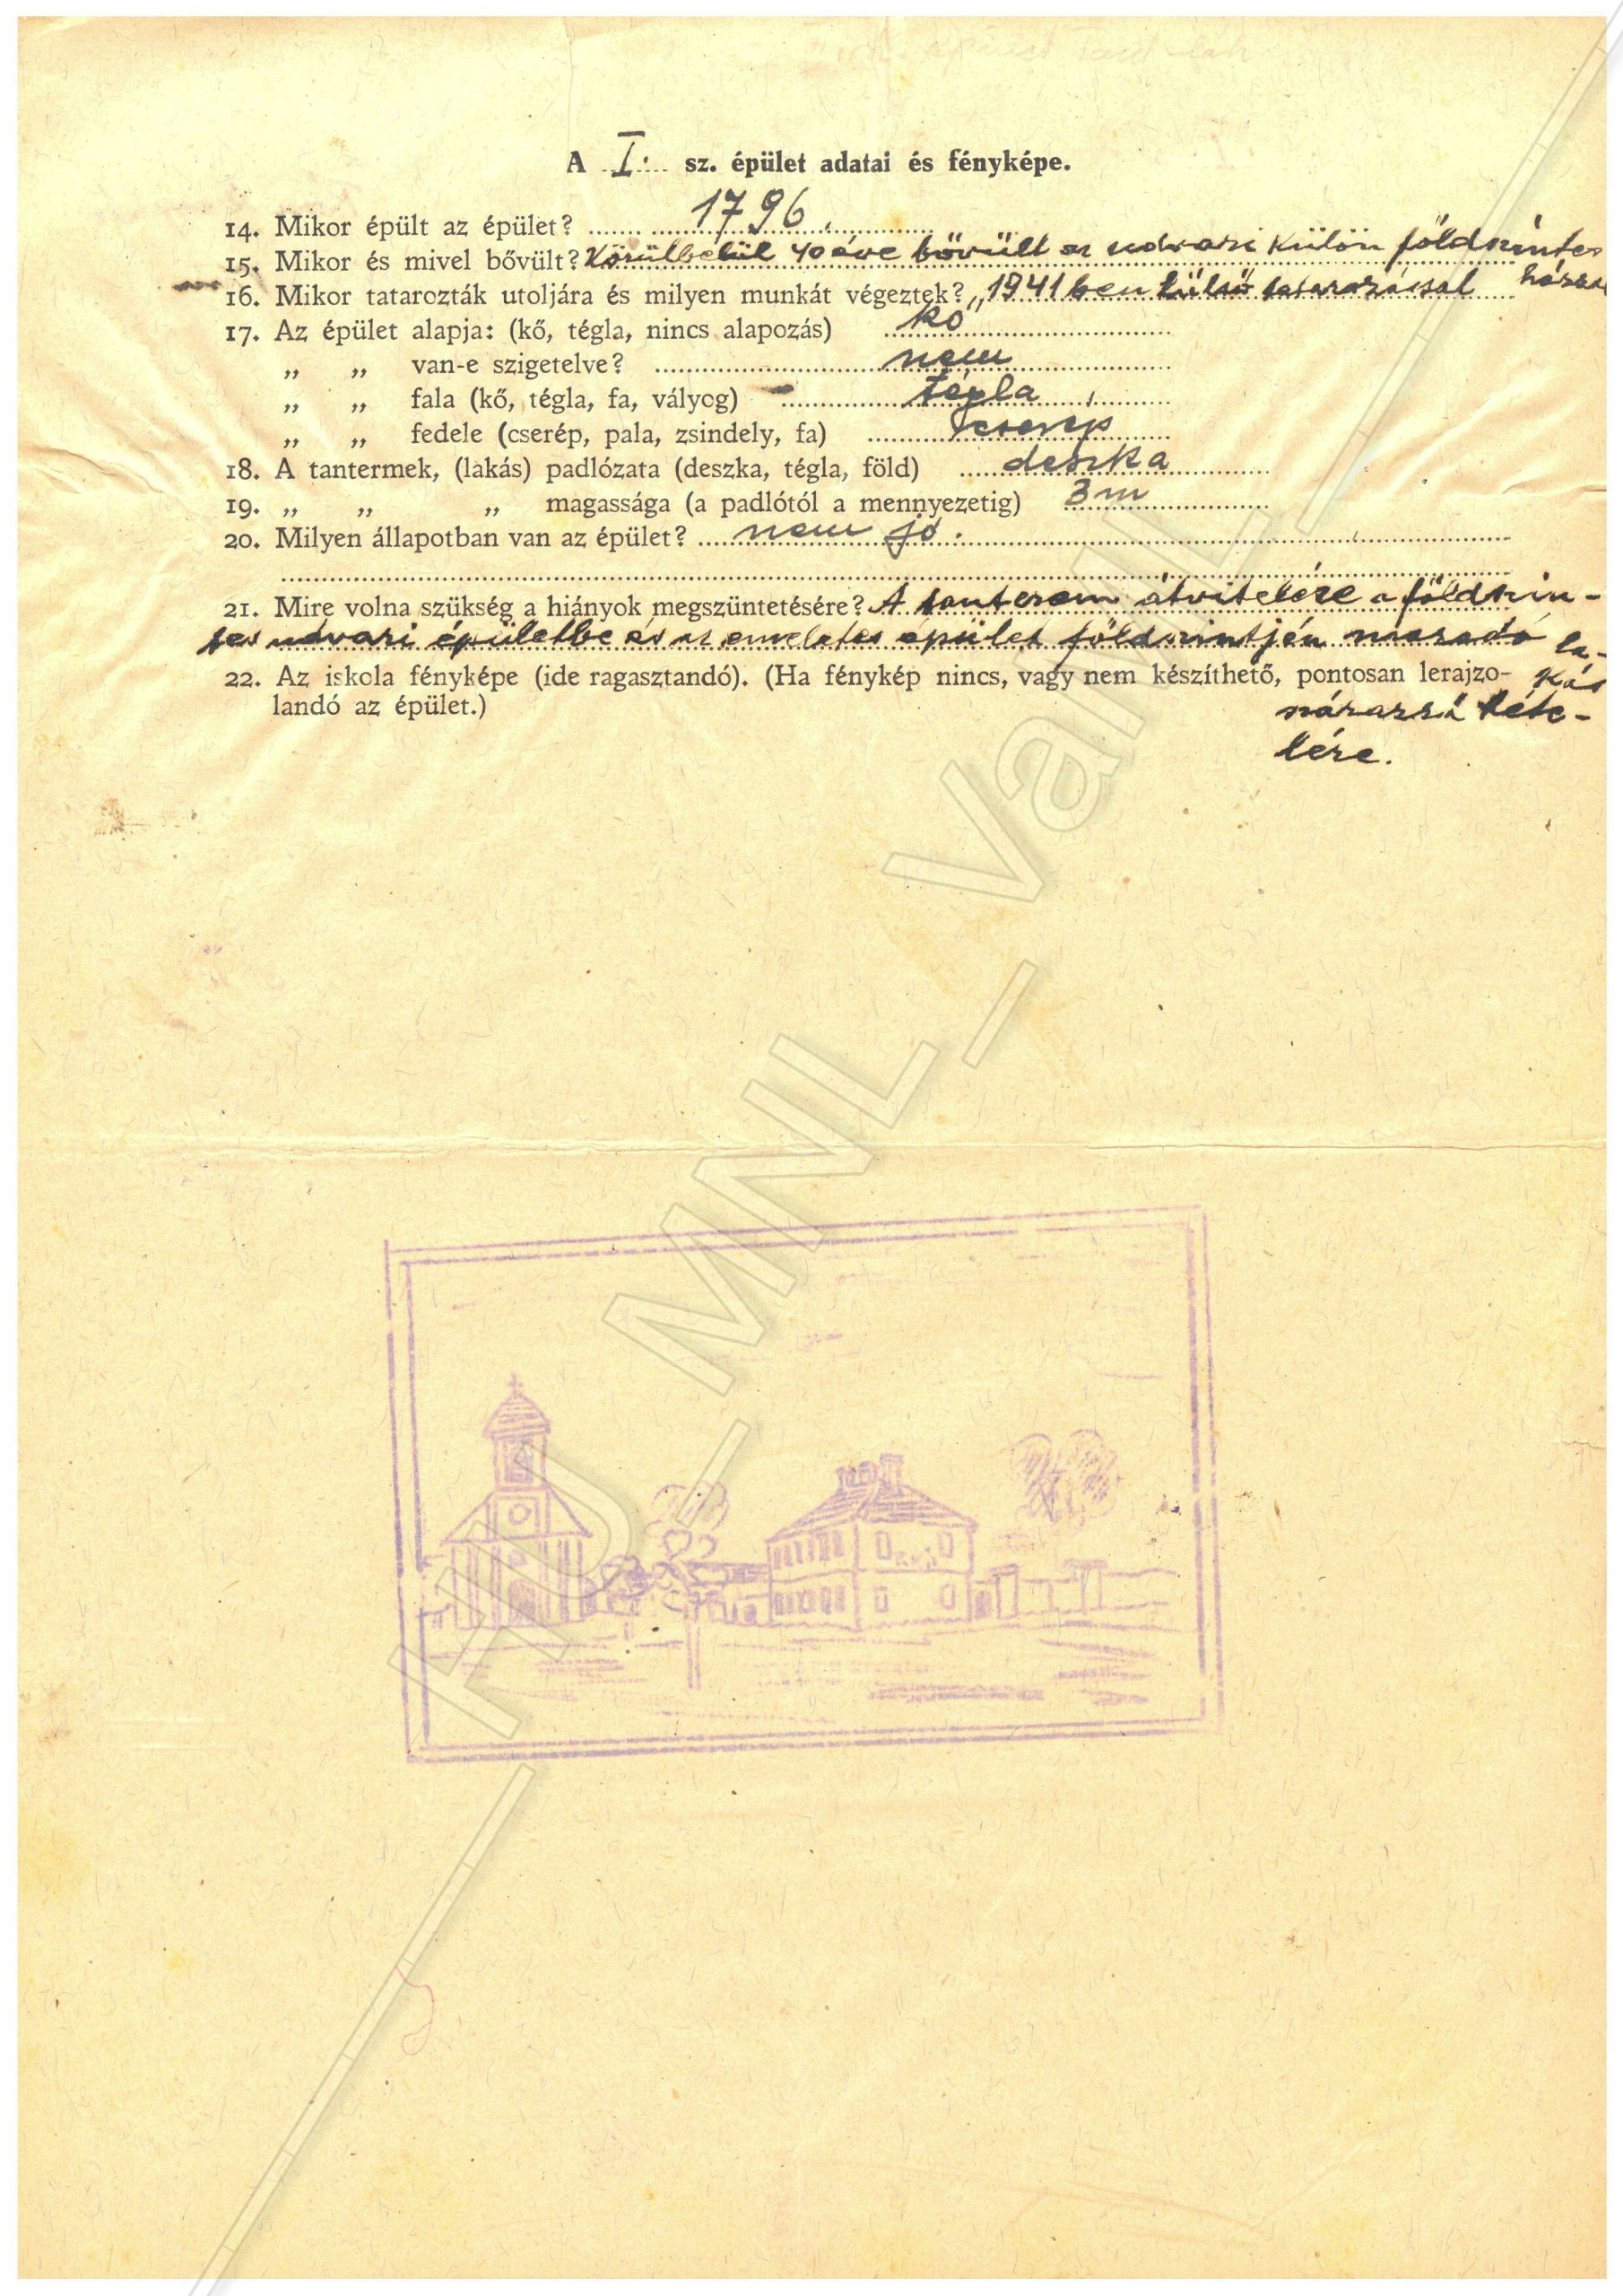 A I. sz. épület adatai és fényképe.
14. Mikor épült az épület? 1796.
15. Mikor és mivel bővült? Körülbelül 40 éve bővült az udvari külön földszintes
16. Mikor tatarozták utoljára és milyen munkát végeztek? „ 1941 ben külső tatarozással házzal
17. Az épület alapja: (kő, tégla, nincs alapozás) kő
„ „ van-e szigetelve? nem
„ „ fala (kő, tégla, fa, vályog) tégla
„ „ fedele (cserép, pala, zsindely, fa) cserép
18. A tantermek, (lakás) padlózata (deszka, tégla, föld) deszka
19. „ „ „ magassága (a padlótól a mennyezetig) 3 m
20. Milyen állapotban van az épület? nem jó.
21. Mire volna szükség a hiányok megszüntetésére? A tanterem átvitelére a földszin-
tes udvari épületbe és az emeletes épület földszintjén maradó la-
22. Az iskola fényképe (ide ragasztandó). (Ha fénykép nincs, vagy nem készíthető, pontosan lerajzo- kás
landó az épület.) szárazzá téte-
lére.
HU_MNL_VaML